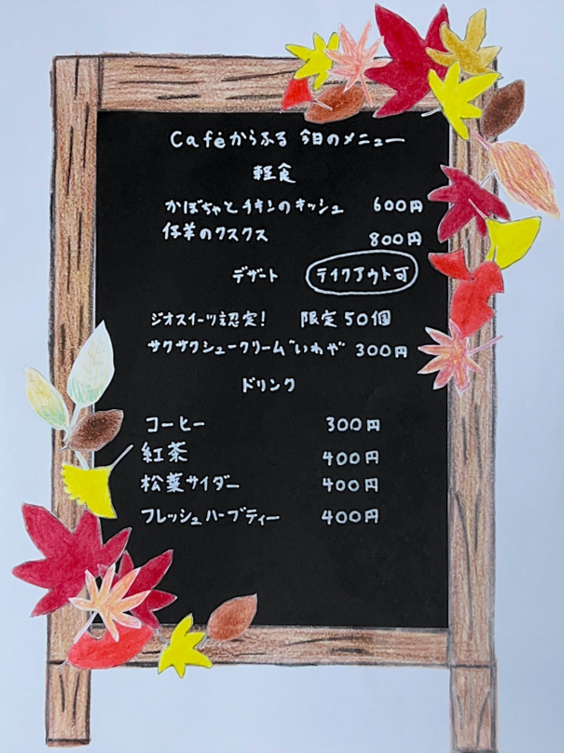 Caféからふる 今日のメニュー
軽食
かぼちゃとチキンのキッシュ 600円
仔羊のクスクス 800円
デザート テイクアウト可
ジオスイーツ認定! 限定50個
サクザクシュークリーム"いわや" 300円
ドリンク
コーヒー 300円
紅茶 400円
松葉サイダー 400円
フレッシュハーブティー 400円